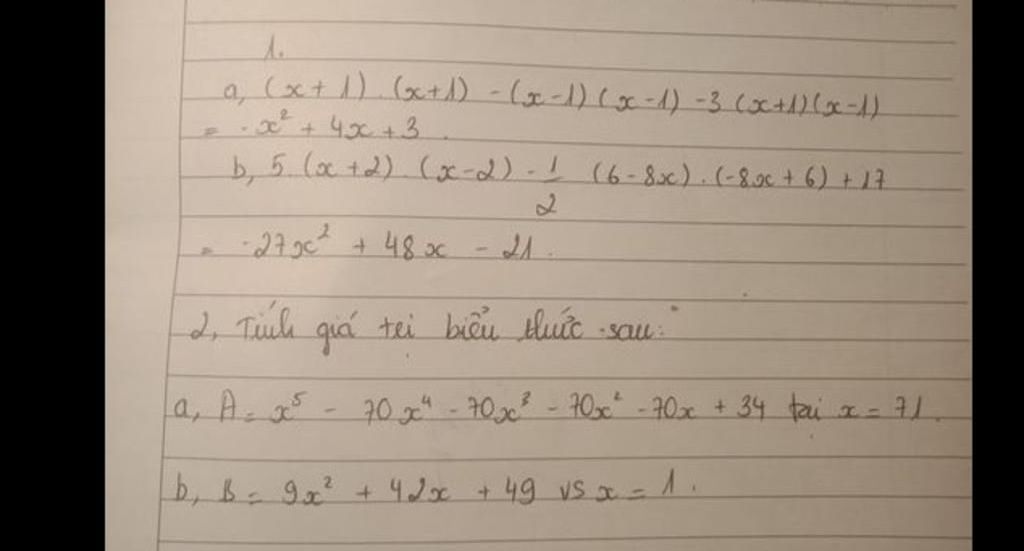 1.
a, (x + 1) . (x+1) - (x-1) (x-1) -3 (x+1)(x-1)
= -x² + 4x + 3.
b, 5 (x+2) . (x-2) - 1/2 (6-8x) . (-8x+6) + 17
= -27x² + 48x - 21.
2, Tính giá trị biểu thức sau:
a, A = x⁵ - 70x⁴ - 70x³ - 70x² - 70x + 34 tại x = 71.
b, B = 9x² + 42x + 49 vs x = 1.